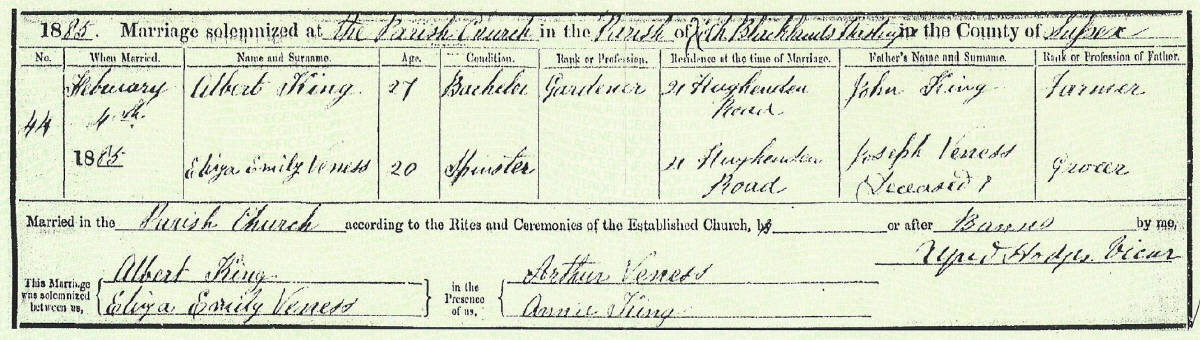 1885. Marriage solemnized at the Parish Church in the Parish of Blacklands Hastings in the County of Sussex
No. When Married. Name and Surname. Age. Condition. Rank or Profession. Residence at the time of Marriage. Father's Name and Surname. Rank or Profession of Father.
February Albert King 27 Bachelor Gardener 21 Hughenden John King Farmer
4th Road
44
1885 Eliza Emily Veness 20 Spinster 21 Hughenden Joseph Veness Grocer
Road (Deceased)
Married in the Parish Church according to the Rites and Ceremonies of the Established Church, by or after Banns by me,
Hodges Vicar
This Marriage was solemnized between us, Albert King in the Presence of us, Arthur Veness
Eliza Emily Veness Annie King